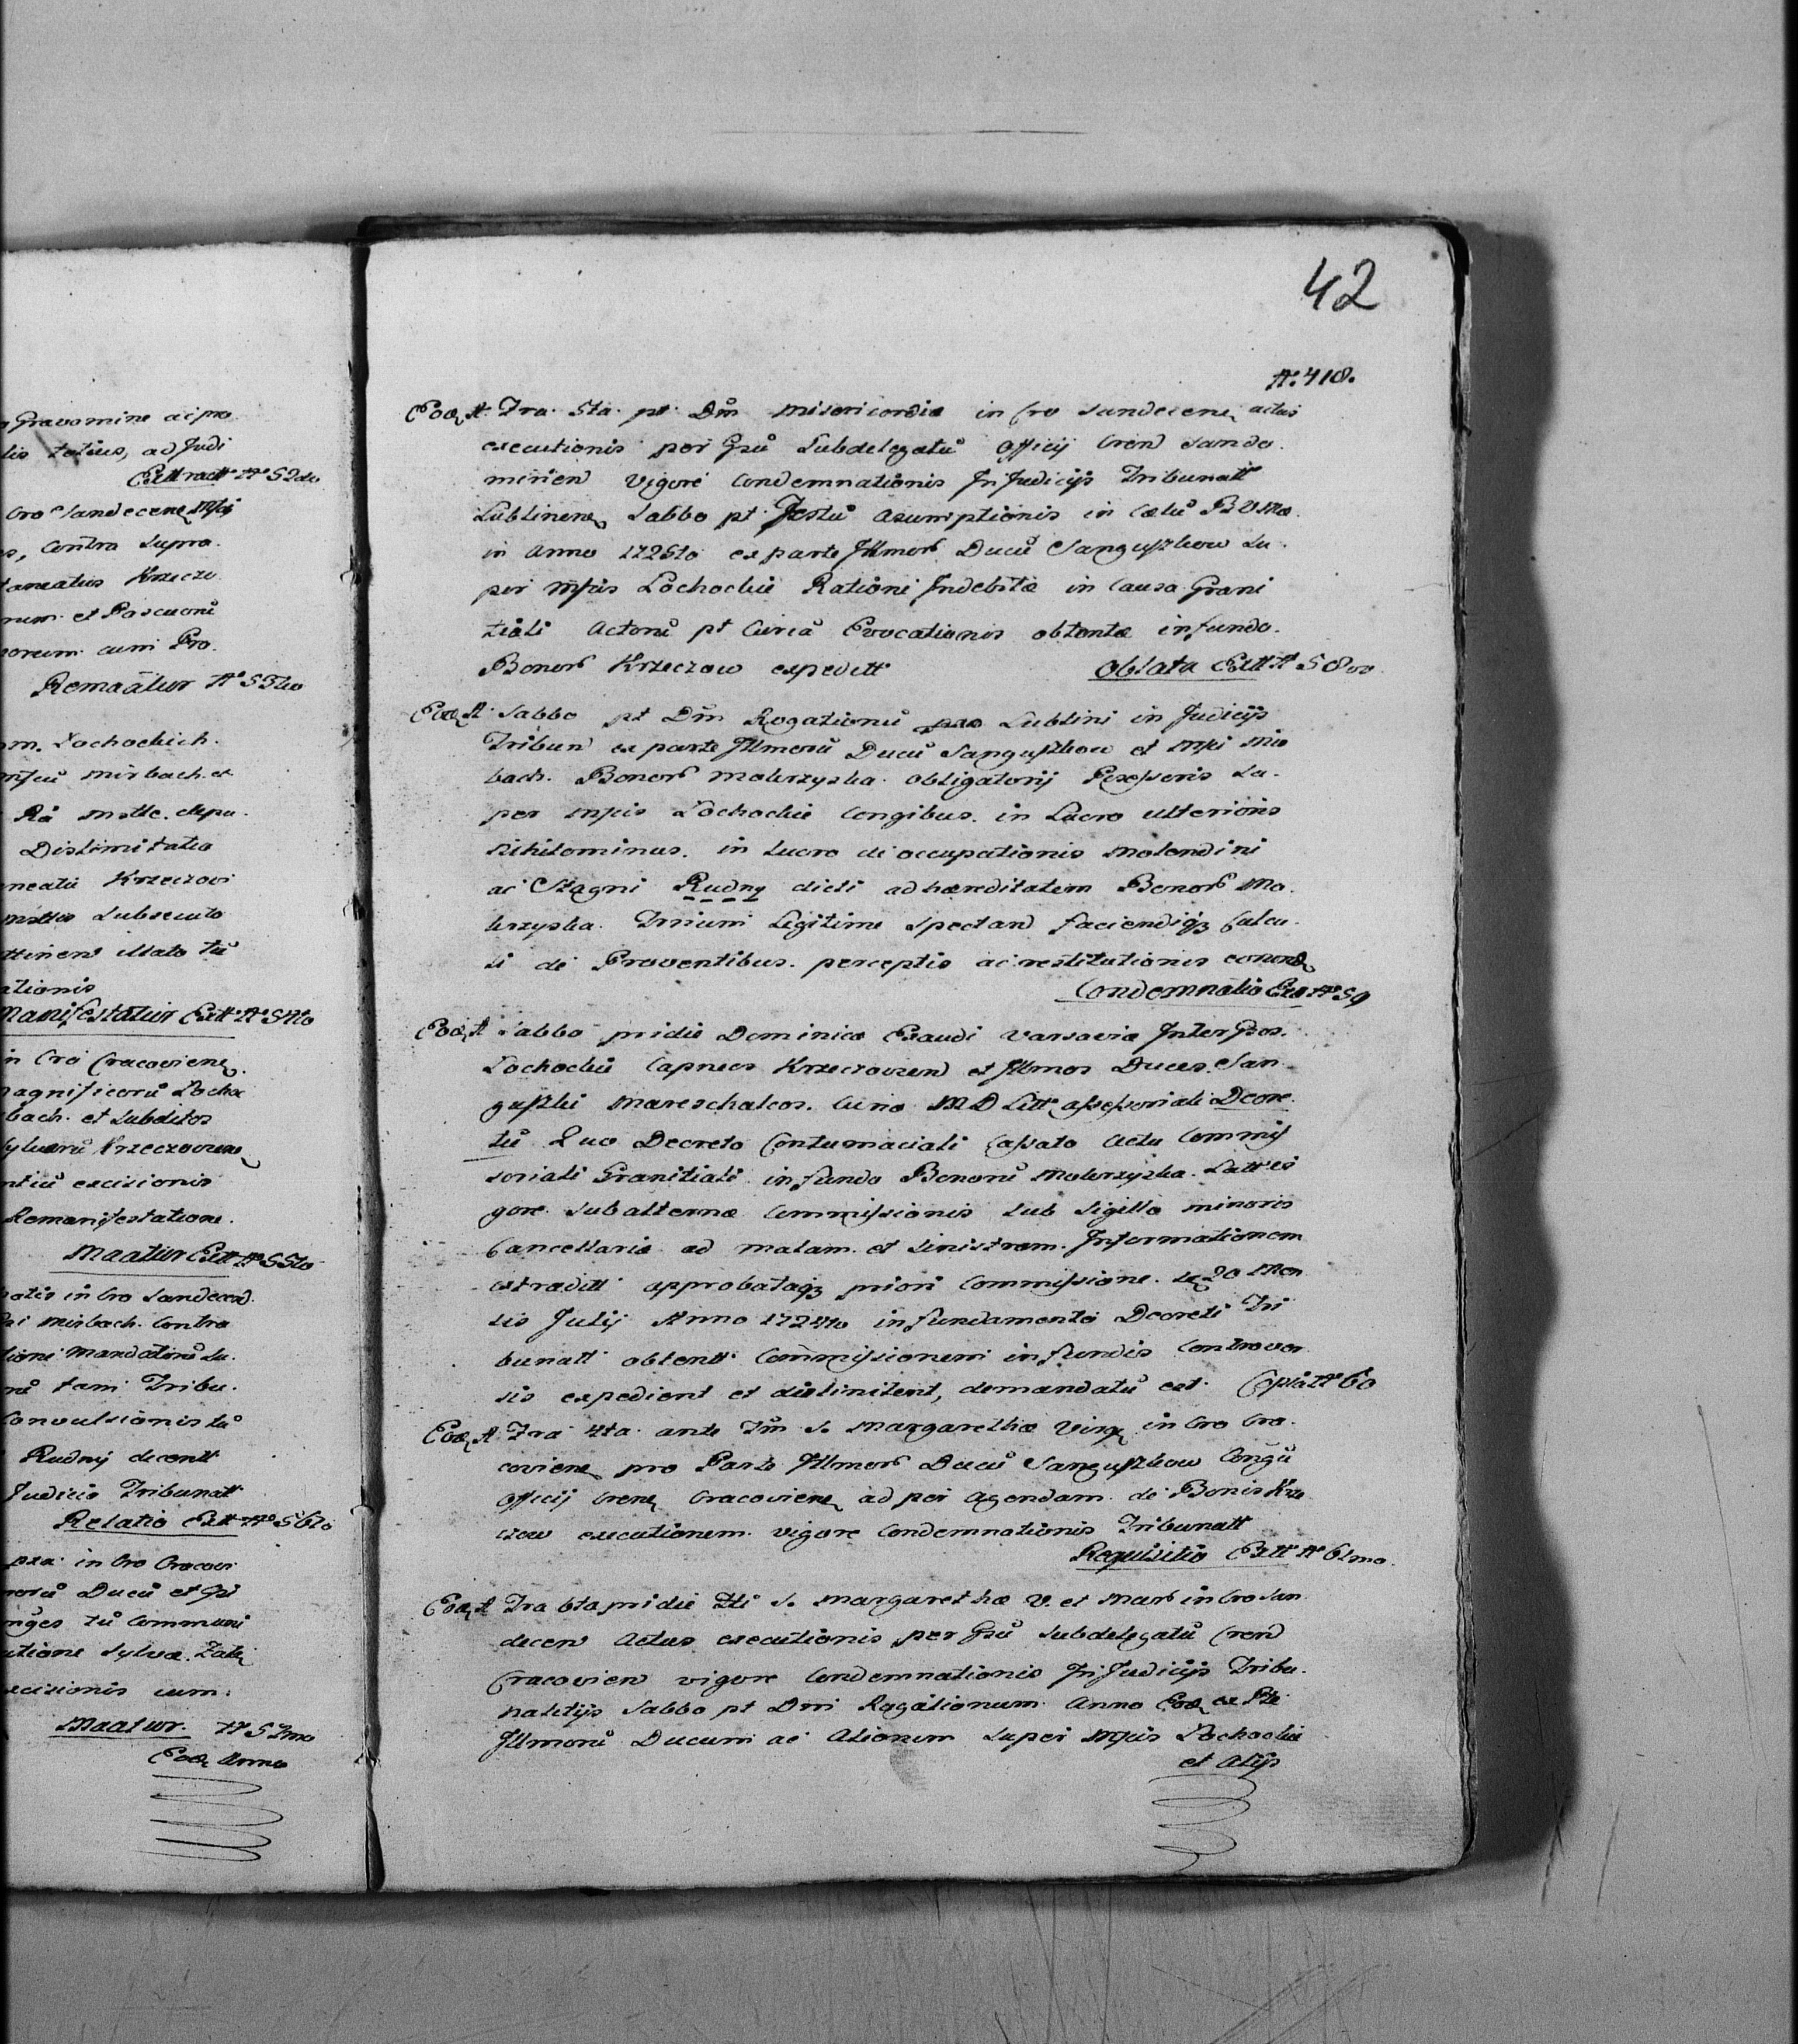 Gravamine ac pro
lis totius, ad Judi
Extractt No 52do
Cro Sandecene Mfci
contra Supra
taneatus Krzeczo
num et Pascuorũ
eorum cum Pro
Remaãtur No 53tio
Lochockich
Mirbach et
Distimitatio
Krzeczovi
Subsecuto
illato tũ
ationis
Manifestatur Extt No 54to
in Cro Cracoviene
Magnificorũ Locho
bach et Subditos
Sylvarũ Krzeczovien
excisionis
Remanifestatione.
Maatur Extt No 55to
in Cro Sandecen
Mirbach Contra
tioni Mandatorũ Su
tam Tribu
Convulsionis tũ
Rudny dicentt
Judicio Tribunatt
Relatio Extt No 56to
in Cro Cracovi
Ducũ et
tũ Communi
utione Sylvæ
excisionis cum
Maatur. No 57mo
Eod Anno
42
No. 418.
Eod A. Fra 5ta pt Dm̃ Misericordiæ in Cro Sandecene actus
executionis per Gsũ Subdelegatũ Officij Cren Sando
mirien vigore Condemnationis In Judicijs Tribunatt
Lublinene Sabbo pt Festũ Asumptionis in Cælũ B V Mæ
in Anno 1725to ex parte Illmorũ Ducũ Sanguszkow Su
per Mfcis Lochockie Rationi Indebitæ in Causa Grani
tiali Actorũ pt Circa Evocationis obtentæ in fundo
Bonorũ Krzeczow expeditt Oblata Extt No 58vo
Eod A. Sabbo pt Dm̃ Rogationũ Lublini in Judicijs
Tribun ex parte Illmorũ Ducũ Sanguszkow et Mfci Mir
bach Bonorũ Mokrzyska obligatorij Possessoris Su
per Mfcis Lochockie Congibus in Lucro ulterioris
nihilominus in lucro de occupationis Molendini
ac Stagni Rudny dicti ad hæreditatem Bonorũ Mo
krzyska Irrium Legitime Spectan faciendiqz Calcu
li de Proventibus perceptis ac restitutionis eorund
Condemnatio Extt No 59
Eod A Sabbo pridie Dominicæ Exaudi Varsaviæ Inter Gsos
Lochockie Capneos Krzeczovien et Illmos Duces San
guszki Mareschalcos Curiæ M D Litt Assessoriali Decre
tũ Quo Decreto Contumaciali Cassato Actu Commis
soriali Granitiali in fundo Bonorũ Mokrzyska
gore Subalternæ Commissionis Sub Sigillo minoris
Cancellariæ ad malam et Sinistram Informationem
extraditt approbataqz priori Commissione 20 Men
sis Julij Anno 1724to in fundamento Decreti Tri
bunatt obtentt Commissionem in fundis Controver
sis expedient et distinitent, demandatũ est Copia No 60
Eod A Fra 4ta ante Fm S. Margarethæ Virg in Cro Cra
coviene pro Parte Illmorũ Ducũ Sanguszkow Congũ
Officij Crene Cracoviene ad per agendam de Bonis Krze
czow executionem vigore Condemnationis Tribunatt
Requisitio Extt No 61mo
Eod A Fra 6ta pridie Fti S. Margarethæ V. et Marũ in Cro San
decen Actus executionis per Gsũ Subdelegatũ Cren
Cracovien vigore Condemnationis In Judicijs Tribu
nalitijs Sabbo pt Dm̃ Rogationum Anno Eod ex Pte
Illmorũ Ducum ac Aliorum Super Mfcis Lochockie
et Alijs